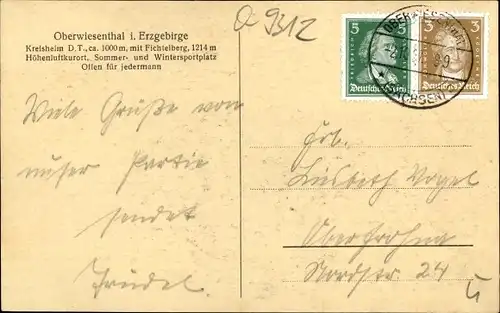 Oberwiesenthal i. Erzgebirge
Kreisheim D. T., ca. 1000 m, mit Fichtelberg, 1214 m
Höhenluftkurort, Sommer- und Wintersportplatz
Offen für jedermann
9312
5 5
Deutsches Reich
3 3
Deutsches Reich
(SACHSEN)
Viele Grüße von
unser Partie
sendet
Trudel
Frl.
Lisbeth Vogel
Oberfrohna
Nordstr. 24